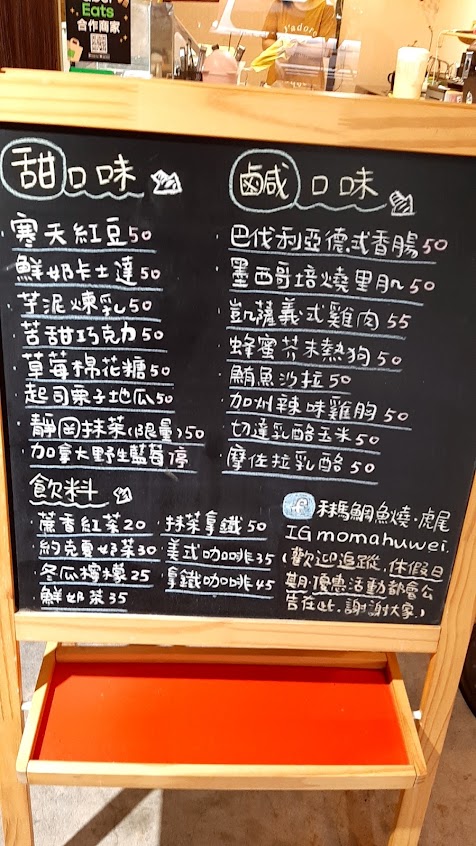 Uber
Eats
合作商家
甜口味
寒天紅豆50
鮮奶卡士達50
芋泥煉乳50
苦甜巧克力50
草莓棉花糖50
起司栗子地瓜50
靜岡抹茶(限量)50
加拿大野生藍莓停
鹹口味
巴伐利亞德式香腸50
墨西哥培燒里肌50
凱薩義式雞肉55
蜂蜜芥末熱狗50
鮪魚沙拉50
加州辣味雞胸50
切達乳酪玉米50
摩佐拉乳酪50
飲料
蔗香紅茶20
約克夏奶茶30
冬瓜檸檬25
鮮奶茶35
抹茶拿鐵50
美式咖啡35
拿鐵咖啡45
鯛魚燒·虎尾
IG momahuwei.
(歡迎追蹤.休假日
期.優惠活動都會公
告在此.謝謝大家.)